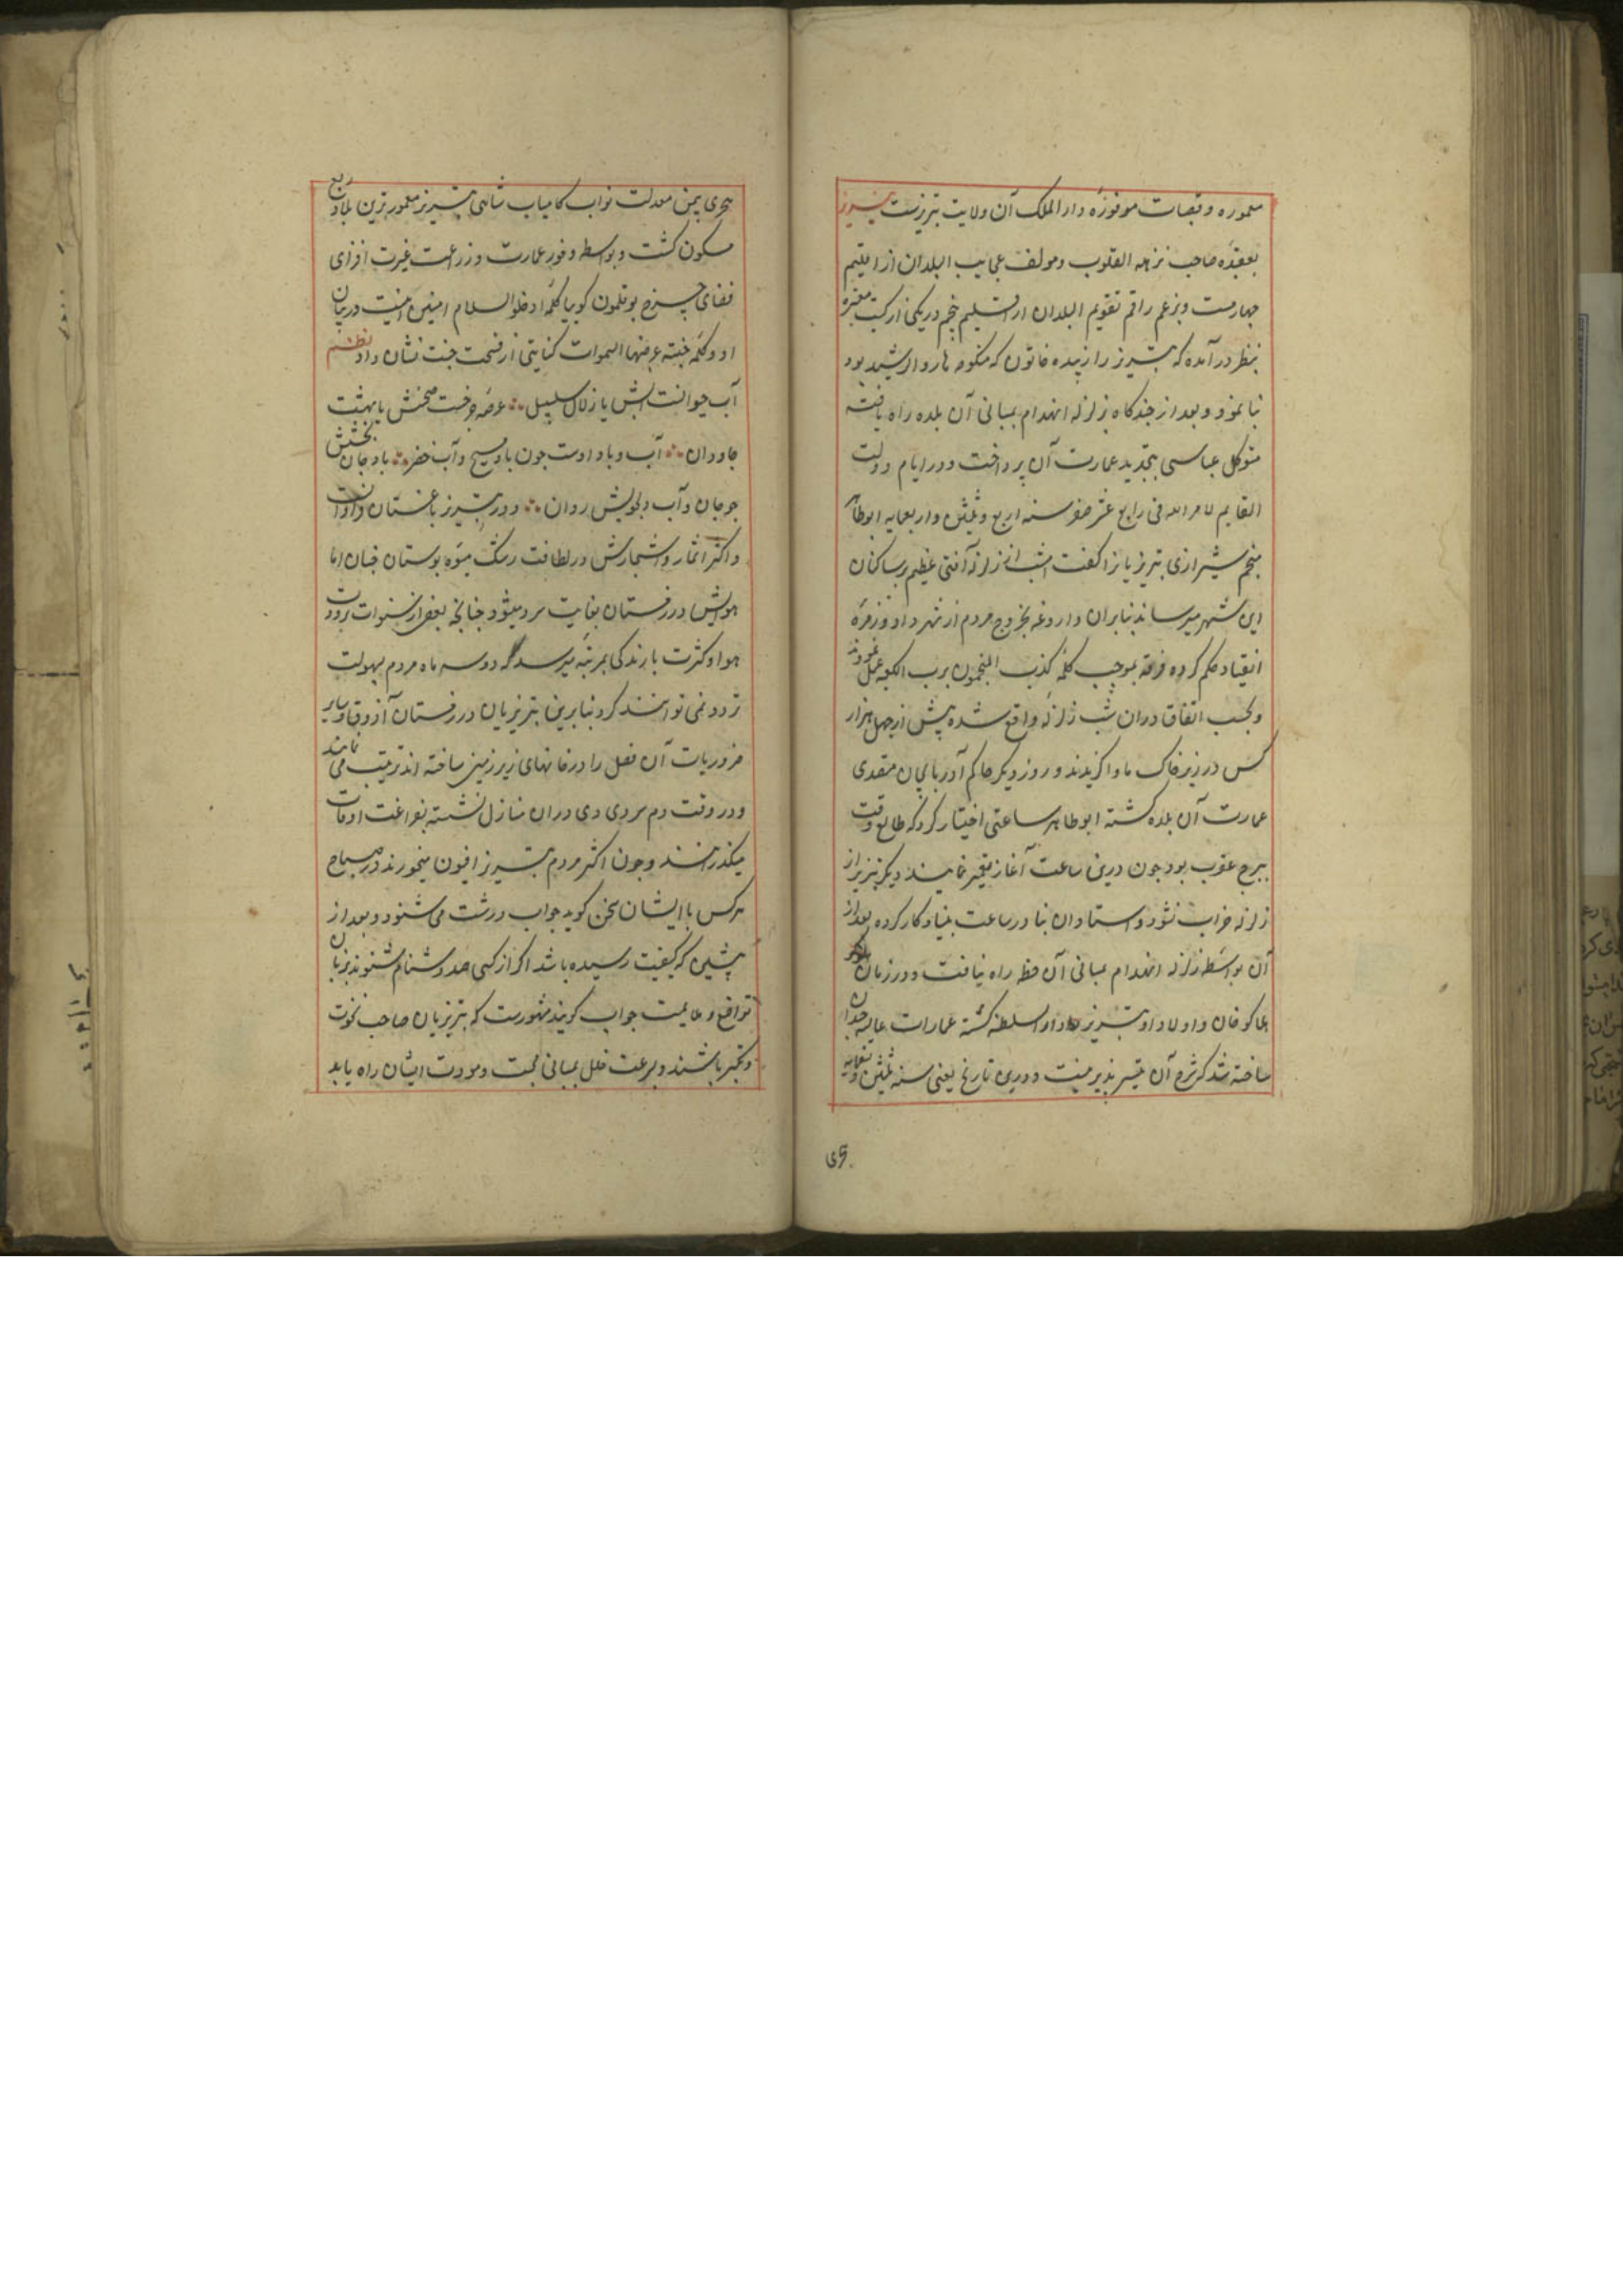 معموره و قصبات موفوره دار الملک آن ولایت تبریزست تبریز
بعقیده صاحب نزهه القلوب و مولف عجایب البلدان از اقلیم
چهارمست و بزعم راقم تقویم البلدان از اقلیم پنجم در یکی از کتب معتبره
بنظر درآمده که تبریز را زبیده خاتون که منکوحه هارون الرشید بود
بنا نمود و بعد از چندگاه بزلزله انهدام بمبانی آن بلده راه یافته
متوکل عباسی بتجدید عمارت آن پرداخت و در ایام دولت
القایم لامر الله فی رابع عشر صفر سنه اربع و ثلثین و اربعمایه ابوطاهر
منجم شیرازی تبریزیانرا گفت امشب از زلزله آفتی عظیم بساکنان
این شهر میرساند بنابران داروغه بخروج مردم از شهر داد و زمره
انقیاد حکم کرده فرقه بموجب کلمه کذب المنجمون برب الکعبه عمل نمودند
و بحسب اتفاق دران شب زلزله واقع شده پیش از چهل هزار
کس در زیر خاک ماوا گزیدند و روز دیگر حاکم آذربایجان متصدی
عمارت آن بلده گشته ابوطاهر ساعتی اختیار کرد که طالع وقت
ببرج عقرب بود چون درین ساعت آغاز تعمیر نمایند دیگر تبریز از
زلزله خراب نشود و استادان بنا در ساعت بنیاد کار کرده بعد از
آن بواسطه زلزله انهدام بمبانی آن خطه راه نیافت و در زمان
هلاکو خان و اولاد او تبریز دار السلطنه گشته عمارات عالیه چندان
ساخته شد که شرح آن تیسیر پذیر نیست و درین تاریخ یعنی سنه ثلثین و تسعمایه
هجری
هجری بیمن معدلت نواب کامیاب شاهی تبریز معمورترین بلاد ربع
مسکون گشت و بواسطه وفور عمارت و زراعت غیرت افزای
فضای چرخ بوقلمون گوییا کلمه ادخلو السلام امنین امنیت در بیان
او و کلمه جنته عرضها السموات کنایتی از فسحت جنت نشان داد نظم
آب حیوانست آبش یا زلال سلسبیل عرصه فرخست صحنش یا بهشت
جاودان آب و باد اوست چون باد مسیح و آب خضر باد جان بخشش
چو جان و آب دلجویش روان و در تبریز باغستان فراوان
و اکثر اثمار و اشجارش در لطافت رشک میوه بوستان جنان اما
هوایش در زمستان بغایت سرد میشود چنانچه بعضی از سنوات برودت
هوا و کثرت بارندگی بمرتبه میرسد که دو سه ماه مردم بسهولت
تردد نمی توانند کرد بنابرین تبریزیان در زمستان آذوقه و سایر
ضروریات آن فصل را در خانهای زیر زمین ساخته اند ترتیب می نمایند
و در وقت دم سردی دی دران منازل نشسته بفراغت اوقات
میگذرانند و چون اکثر مردم تبریز افیون میخورند در صباح
هر کس با ایشان سخن گوید جواب درشت می شنود و بعد از
پیشین که کیفیت رسیده باشد اگر از کسی صد دشنام شنوند بزبان
تواضع و ملایمت جواب گویند مشهورست که تبریزیان صاحب نخوت
و تکبر باشند و بسرعت خلل بمبانی محبت و مودت ایشان راه یابد